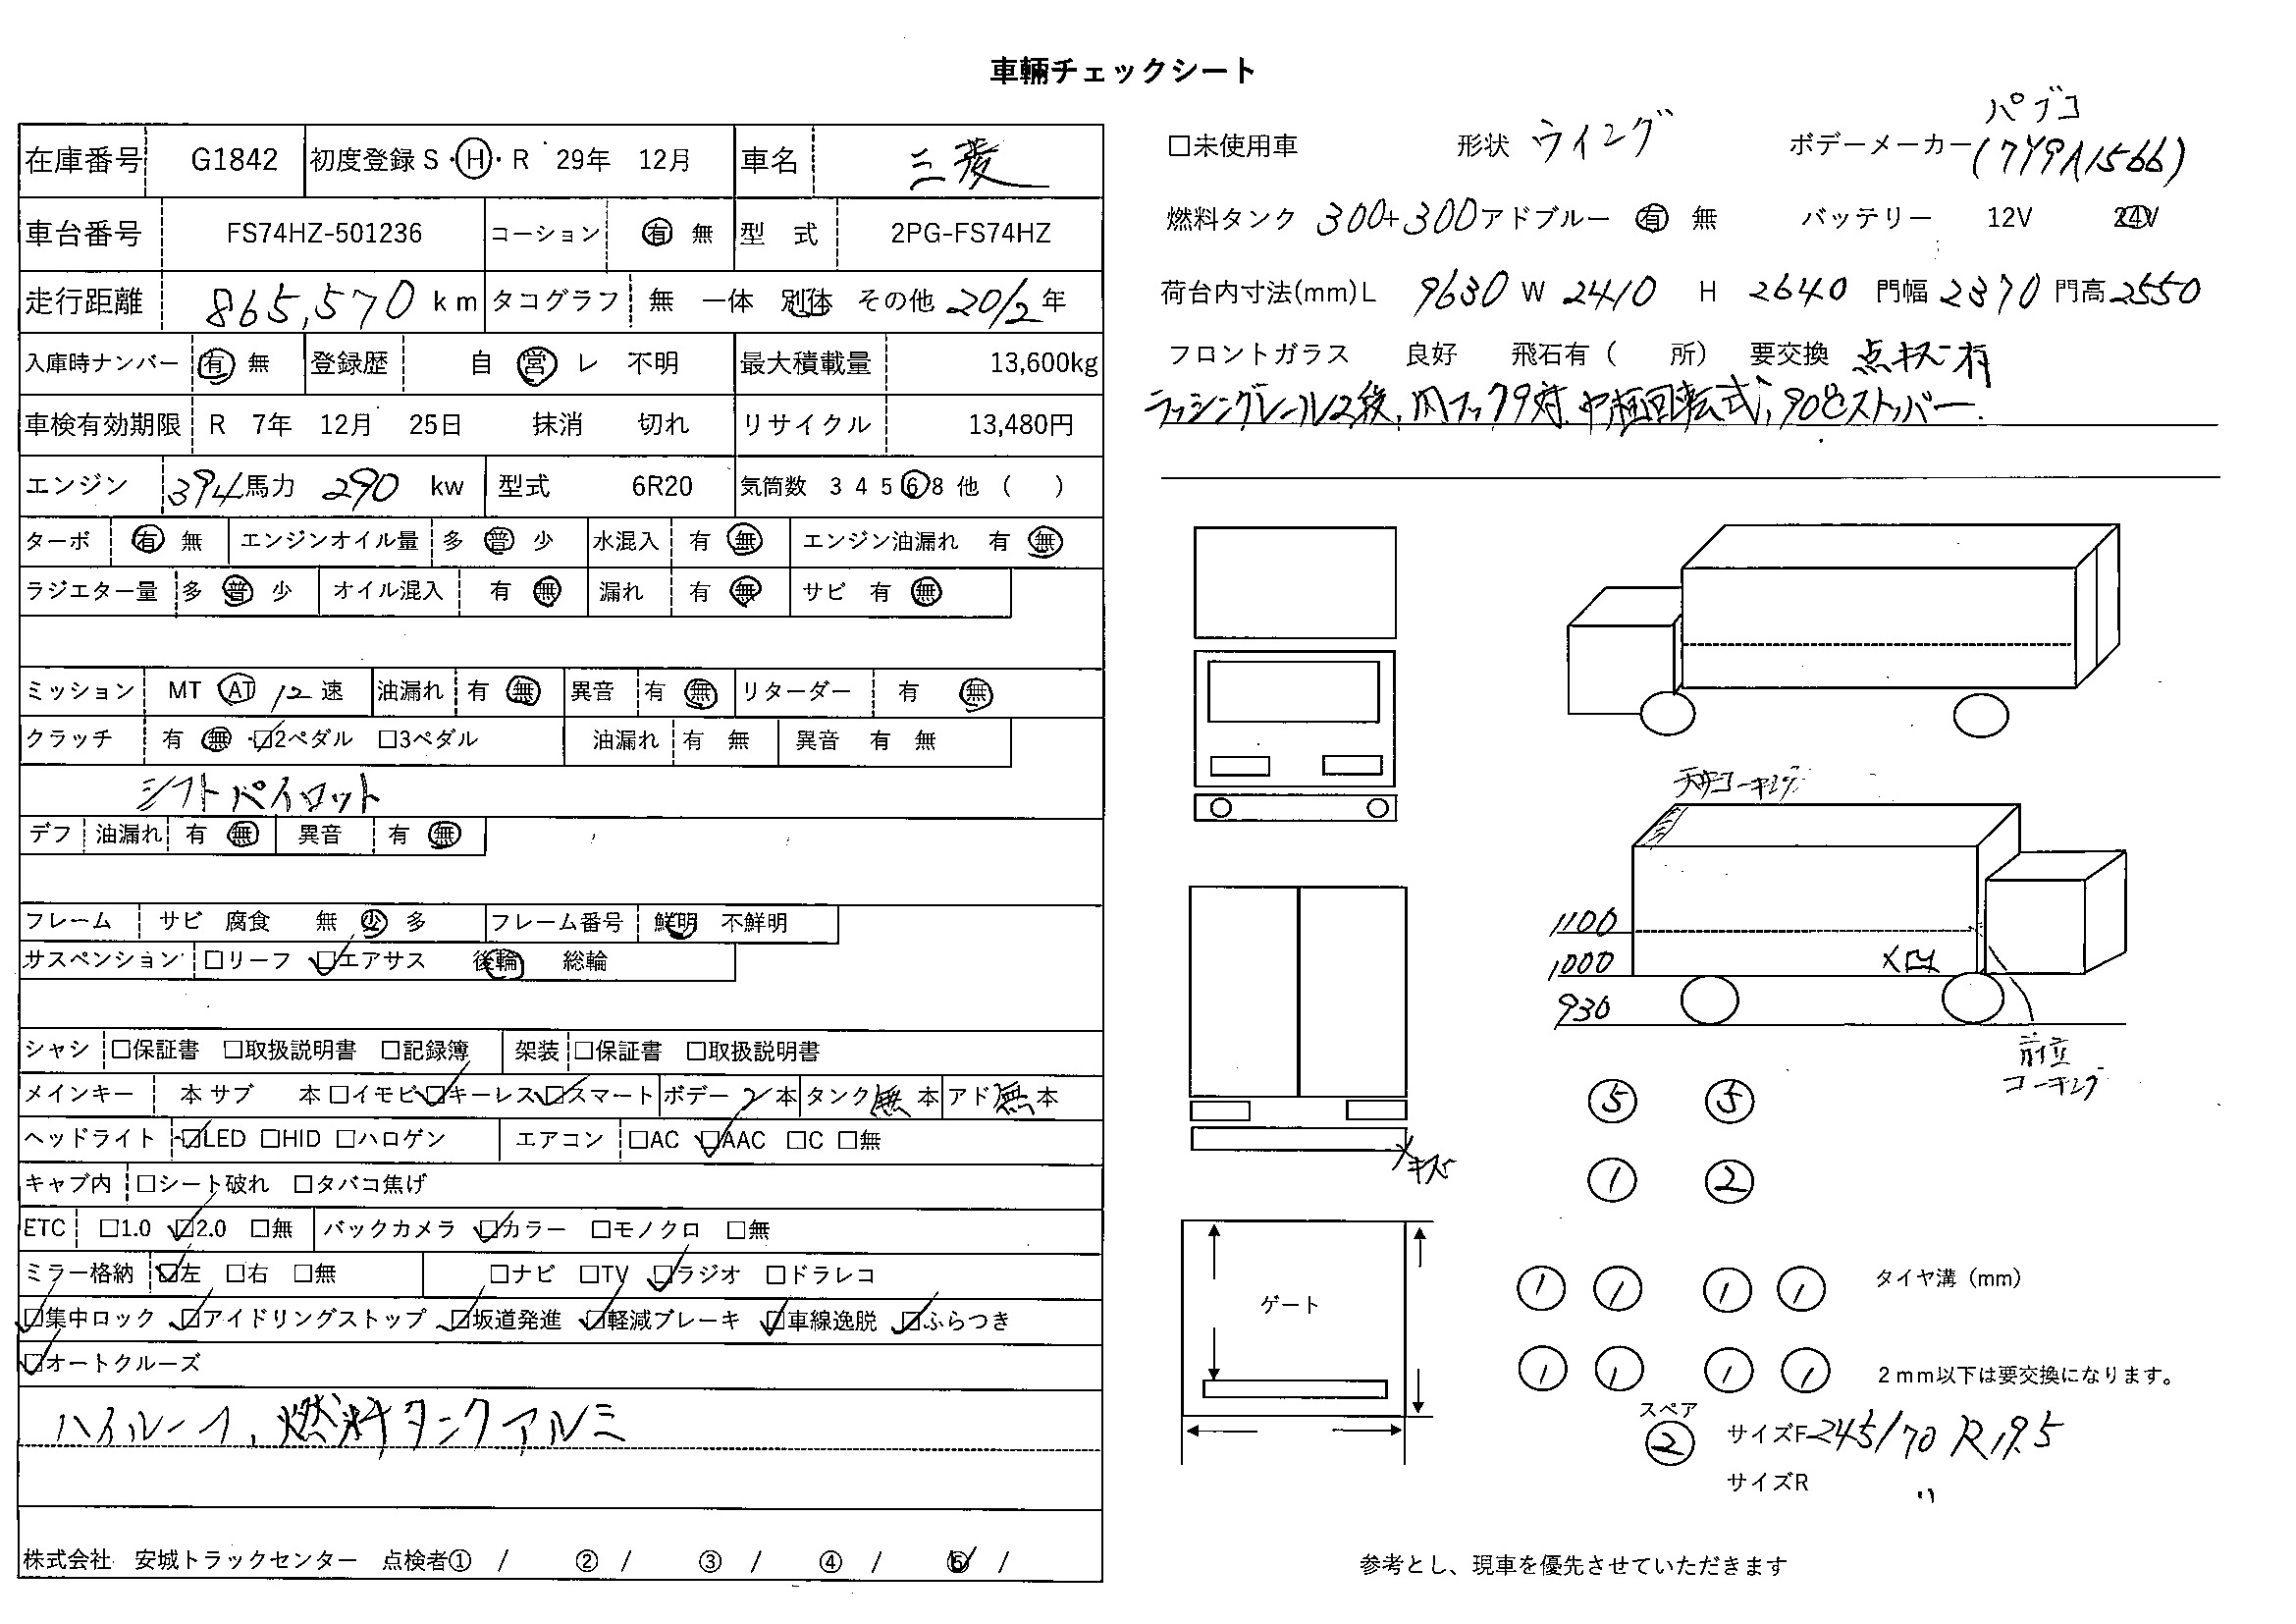 車輛チェックシート
在庫番号 G1842 初度登録 S・H・R 29年 12月 車名 三菱
車台番号 FS74HZ-501236 コーション 有 無 型 式 2PG-FS74HZ
走行距離 865,570 km タコグラフ 無 一体 別体 その他 20/2年
入庫時ナンバー 有 無 登録歴 自 営 レ 不明 最大積載量 13,600kg
車検有効期限 R 7年 12月 25日 抹消 切れ リサイクル 13,480円
エンジン 394馬力 290 kw 型式 6R20 気筒数 3 4 5 6 8 他 ( )
ターボ 有 無 エンジンオイル量 多 普 少 水混入 有 無 エンジン油漏れ 有 無
ラジエター量 多 普 少 オイル混入 有 無 漏れ 有 無 サビ 有 無
ミッション MT AT 12速 油漏れ 有 無 異音 有 無 リターダー 有 無
クラッチ 有 無 ☑2ペダル □3ペダル 油漏れ 有 無 異音 有 無
シフトパイロット
デフ 油漏れ 有 無 異音 有 無
フレーム サビ 腐食 無 少 多 フレーム番号 鮮明 不鮮明
サスペンション □リーフ ☑エアサス 後輪 総輪
シャシ □保証書 □取扱説明書 □記録簿 架装 □保証書 □取扱説明書
メインキー 本 サブ 本 □イモビ ☑キーレス ☑スマート ボデー 2本 タンク 無 本 アド 無 本
ヘッドライト ☑LED □HID □ハロゲン エアコン □AC ☑AAC □C □無
キャブ内 □シート破れ □タバコ焦げ
ETC □1.0 ☑2.0 □無 バックカメラ ☑カラー □モノクロ □無
ミラー格納 ☑左 □右 □無 □ナビ □TV ☑ラジオ □ドラレコ
☑集中ロック ☑アイドリングストップ ☑坂道発進 ☑軽減ブレーキ ☑車線逸脱 ☑ふらつき
☑オートクルーズ
ハイルーフ、燃料タンクアルミ
株式会社 安城トラックセンター 点検者① / ② / ③ / ④ / ⑤ /
□未使用車 形状 ウイング ボデーメーカー パブコ
燃料タンク 300+300 アドブルー 有 無 バッテリー 12V 24V
荷台内寸法(mm)L 9630 W 2410 H 2640 門幅 2370 門高 2550
フロントガラス 良好 飛石有 ( 所) 要交換 点キズ有
ラッシングレール2段、内フック9対、中柱回転式、90°ストッパー.
天井コーキング
1100
1000
930
前立
コーキング
キズ
⑤ ⑤
① ②
ゲート
① ① ① ① タイヤ溝 (mm)
① ① ① ① 2mm以下は要交換になります。
スペア
② サイズF 245/70 R19.5
サイズR 〃
参考とし、現車を優先させていただきます